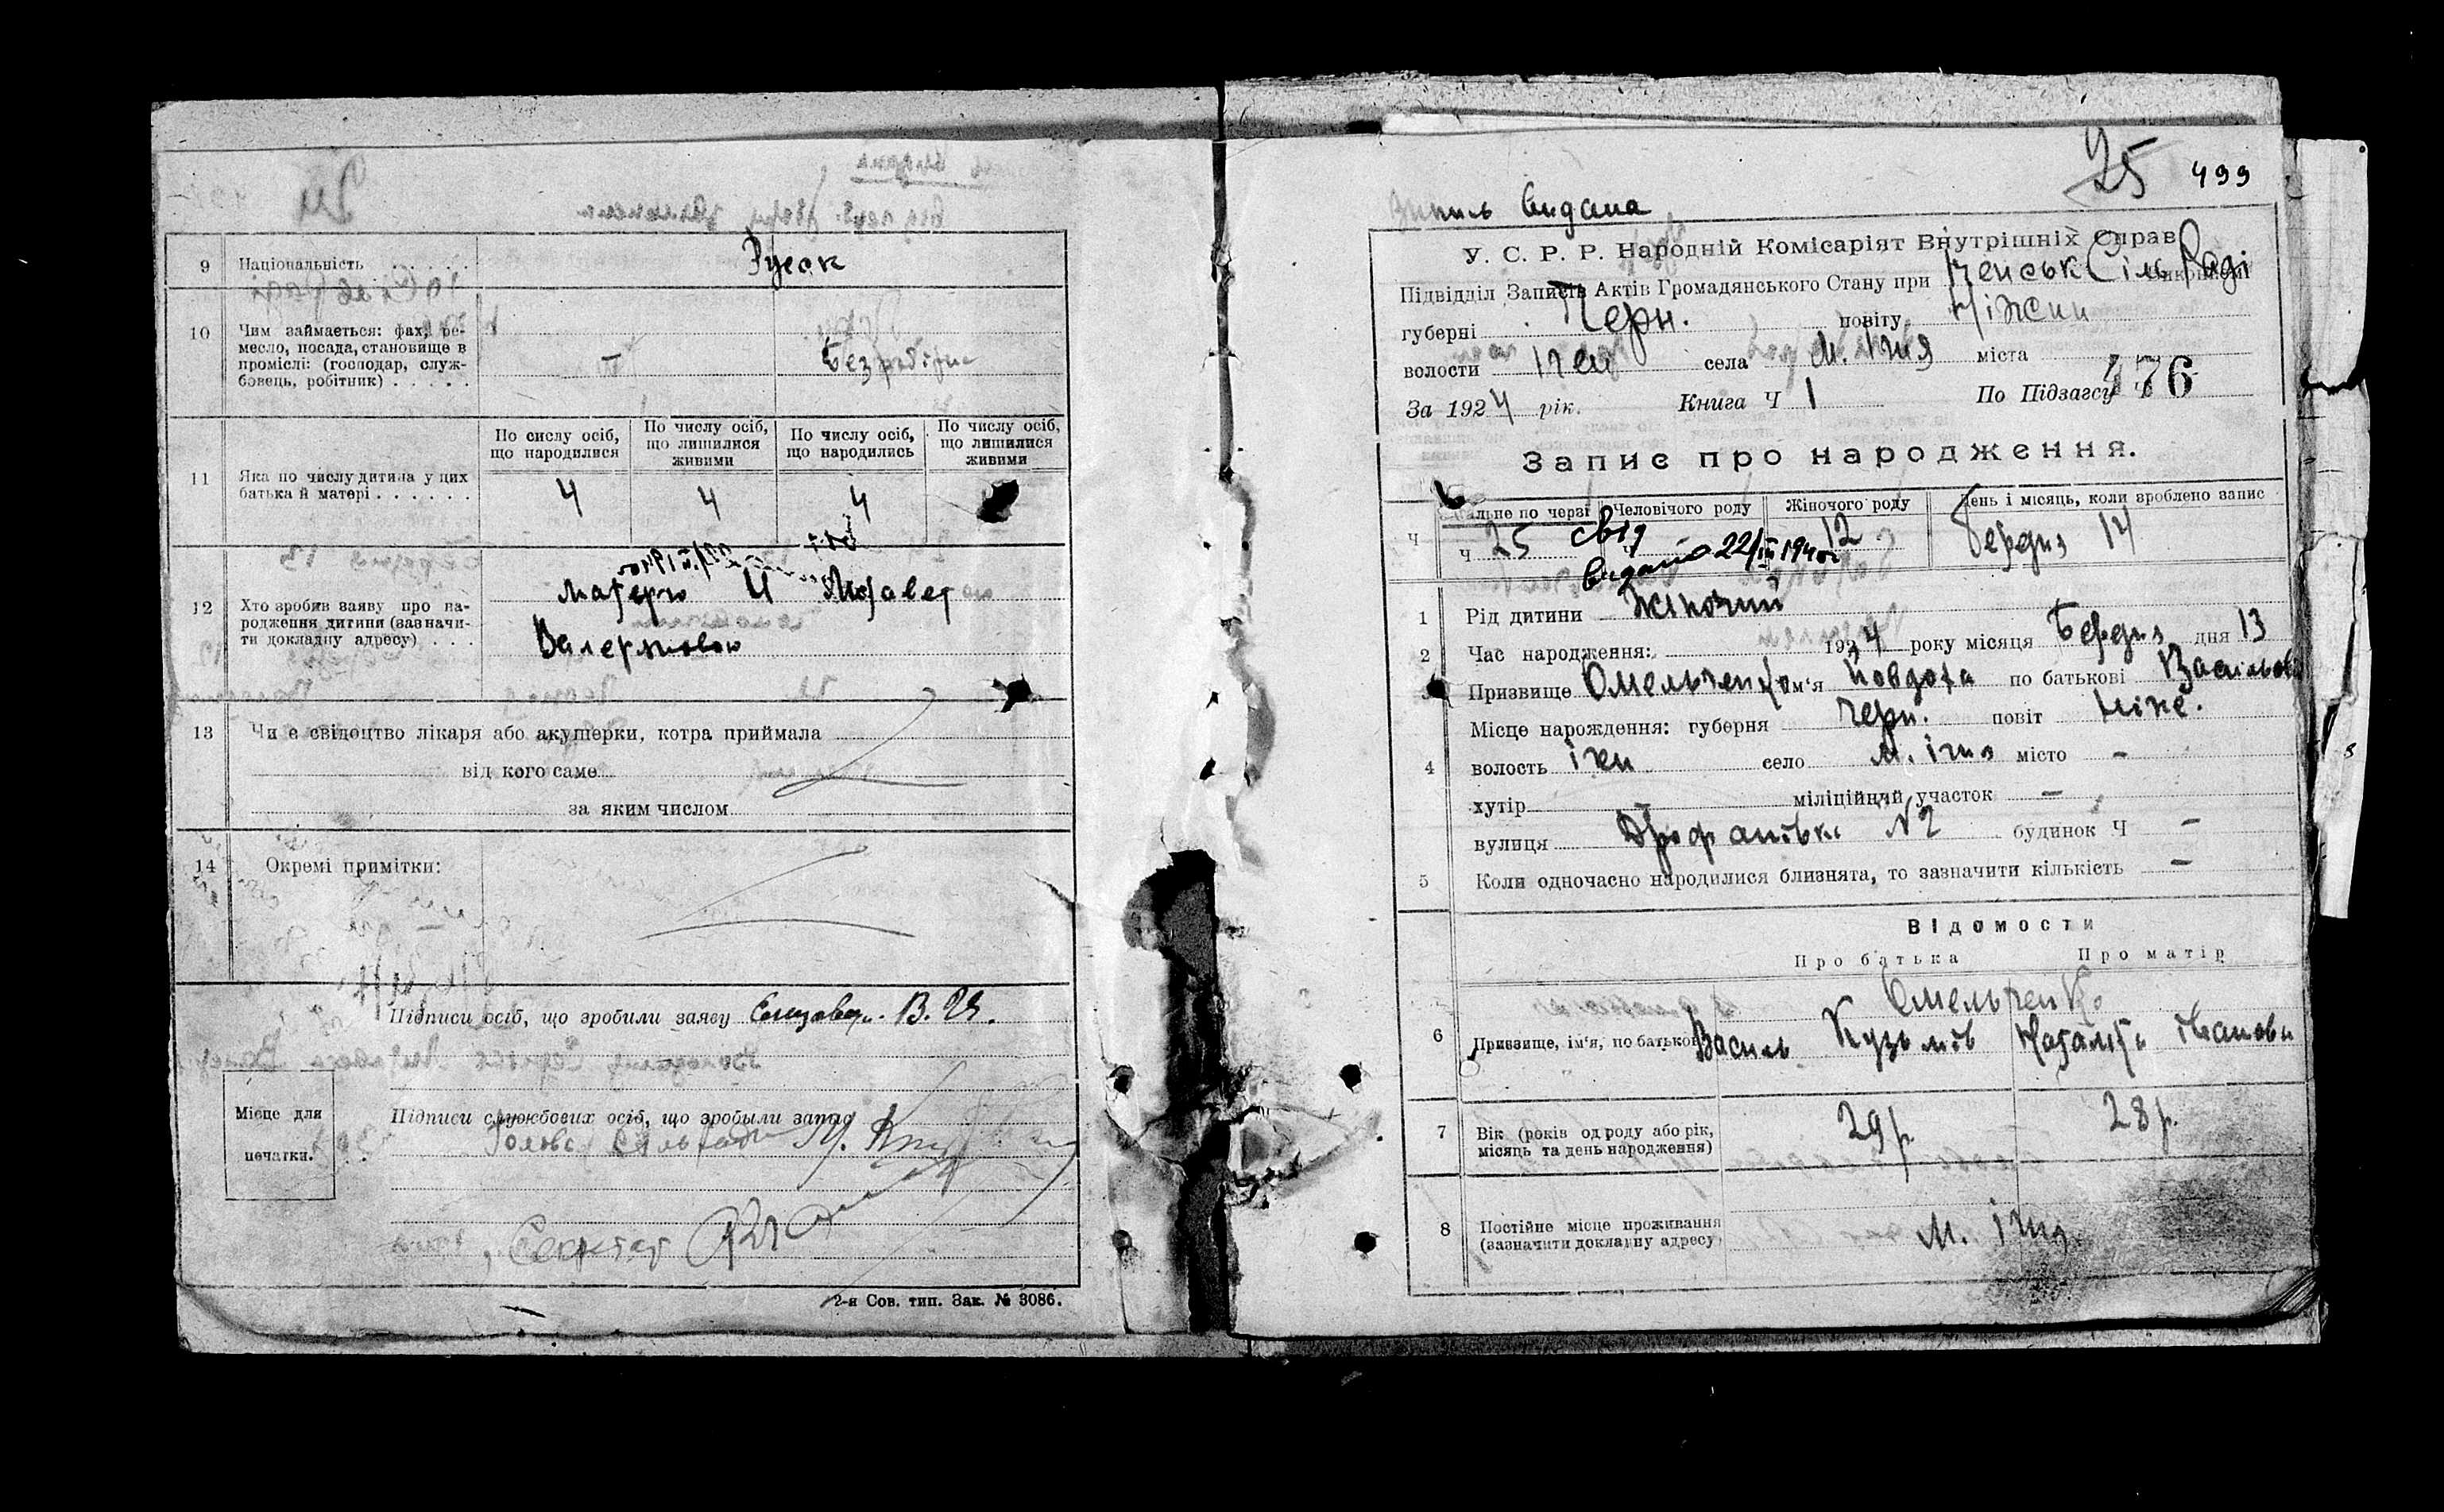 9 Національність Руськ
10 Чим займається: фах, ре-
месло, посада, становище в
промислі: (господар, служ-
бовець, робітник)
11 Яка по числу дитина у цих
батька й матері
По сислу осіб,
що народилися
По числу осіб,
що лишилися
живими
По числу осіб,
що народились
По числу осіб,
що лишилися
живими
4 4 4
12 Хто зробив заяву про на-
родження дитини (зазначи-
ти докладну адресу)
13 Чи є свідоцтво лікаря або акушерки, котра приймала
від кого саме
за яким числом
14 Окремі примітки:
Підписи осіб, що зробили заяву
Місце для
печатки.
Підписи службових осіб, що зробыли запис
Голова
Секретар
2-я Сов. тип. Зак. № 3086.
25 499
видана
У. С. Р. Р. Народній Комісаріят Внутрішніх Справ
Підвідділ Записів Актів Громадянського Стану при Іченськ Сіль Раді
губерні Черн. повіту Ніжин
волости Ічен села м. Ічня міста
За 1924 рік. Книга Ч 1 По Підзагсу 476
Запис про народження.
Ч по черзі Человічого роду Жіночого роду День і місяць, коли зроблено запис
ч 25 свід 12 Березня 14
видано 22/III 1940г
1 Рід дитини Жіночий
2 Час народження: 1924 року місяця Березня дня 13
3 Призвище Омельченко Ім'я Йовдоха по батькові Васильов
Місце народження: губерня Черн. повіт Ніже.
4 волость Ічн село м. Ічня місто –
хутір міліційний участок –
вулиця N2 будинок Ч –
5 Коли одночасно народилися близнята, то зазначити кількість –
Відомости
Про батька Про матір
Омельченко
6 Призвище, ім'я, по батькові Василь Кузьмів Наталія Іванови
7 Вік (років од роду або рік,
місяць та день народження) 29 р. 28 р.
8 Постійне місце проживання
(зазначити докладну адресу) м. Ічня